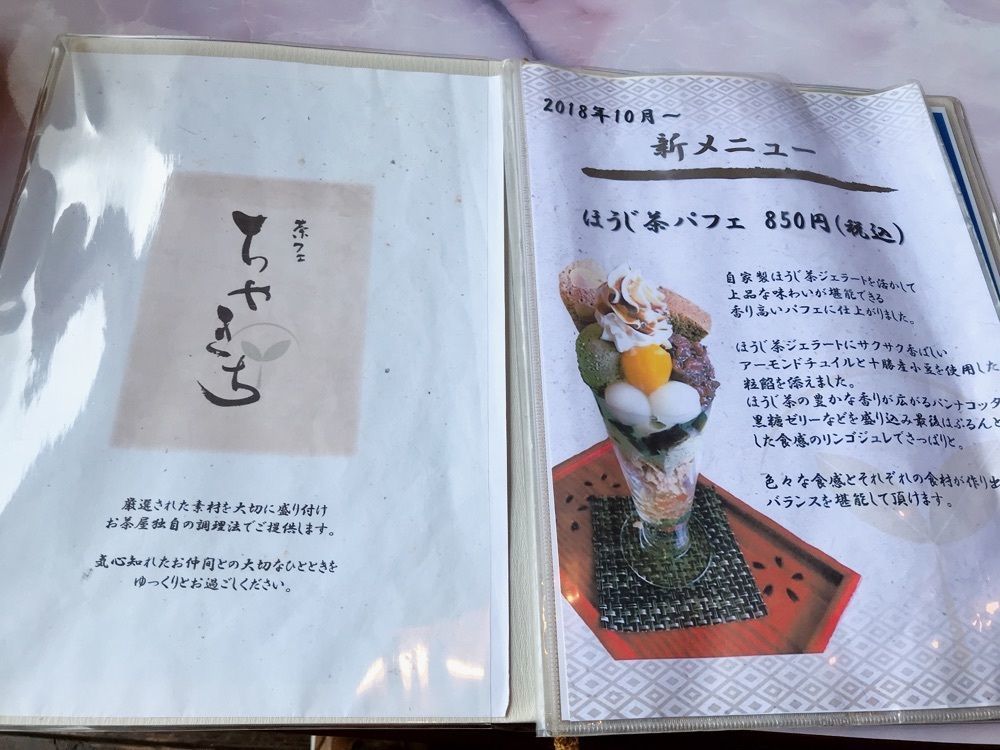 茶フェ
ちゃきち
厳選された素材を大切に盛り付け
お茶屋独自の調理法でご提供します。
気心知れたお仲間との大切なひとときを
ゆっくりとお過ごしください。
2018年10月～
新メニュー
ほうじ茶パフェ 850円(税込)
自家製ほうじ茶ジェラートを活かして
上品な味わいが堪能できる
香り高いパフェに仕上がりました。
ほうじ茶ジェラートにサクサク香ばしい
アーモンドチュイルと十勝産小豆を使用した
粒餡を添えました。
ほうじ茶の豊かな香りが広がるパンナコッタ
黒糖ゼリーなどを盛り込み最後はぷるんと
した食感のリンゴジュレでさっぱりと。
色々な食感とそれぞれの食材が作り出
バランスを堪能して頂けます。